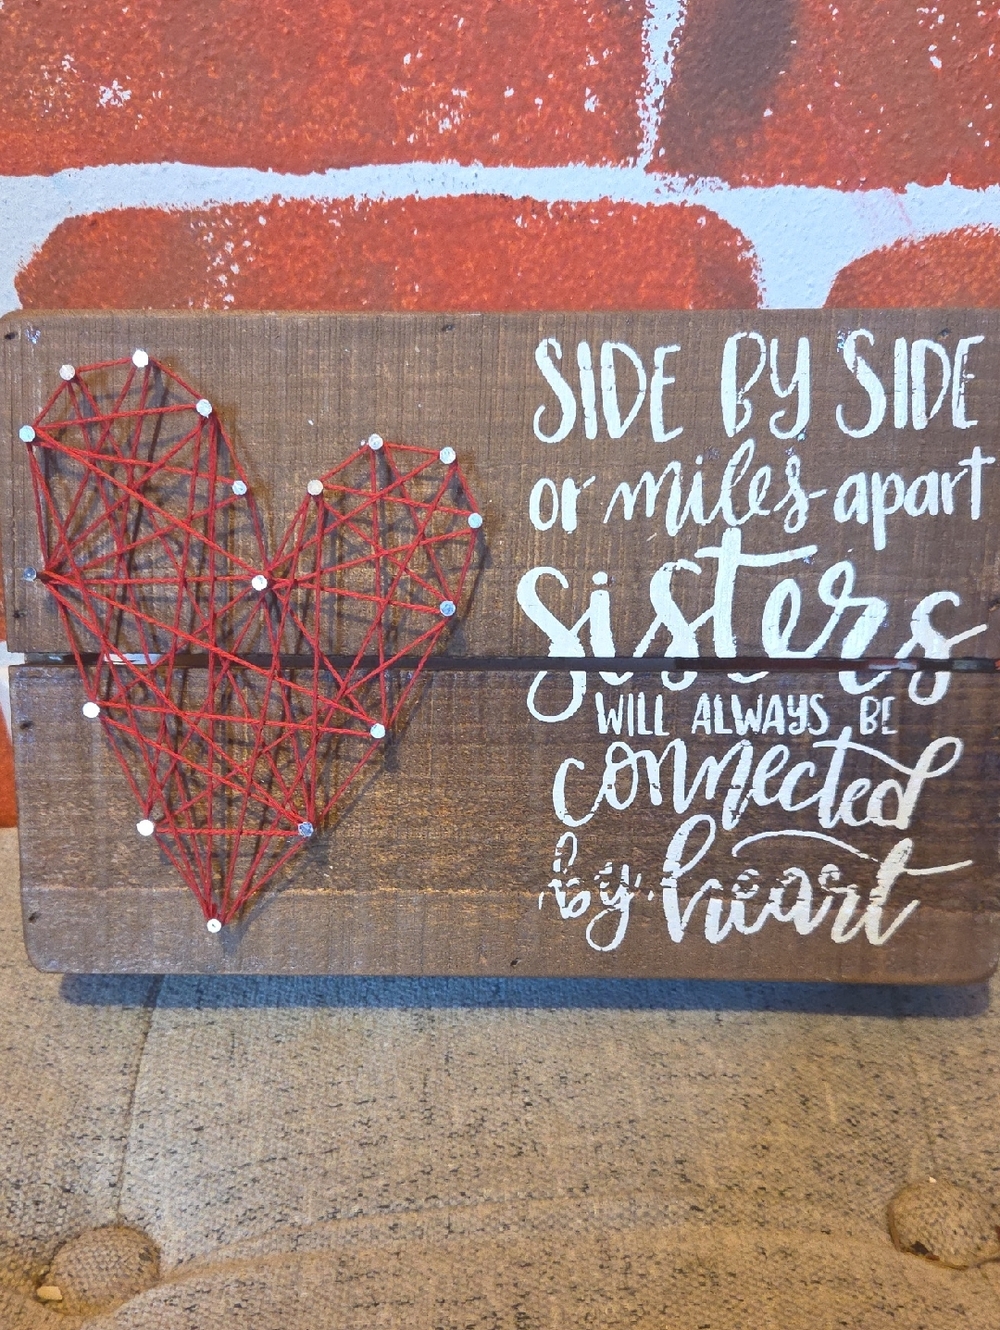 SIDE BY SIDE
or miles apart
sisters
WILL ALWAYS BE
connected
by heart